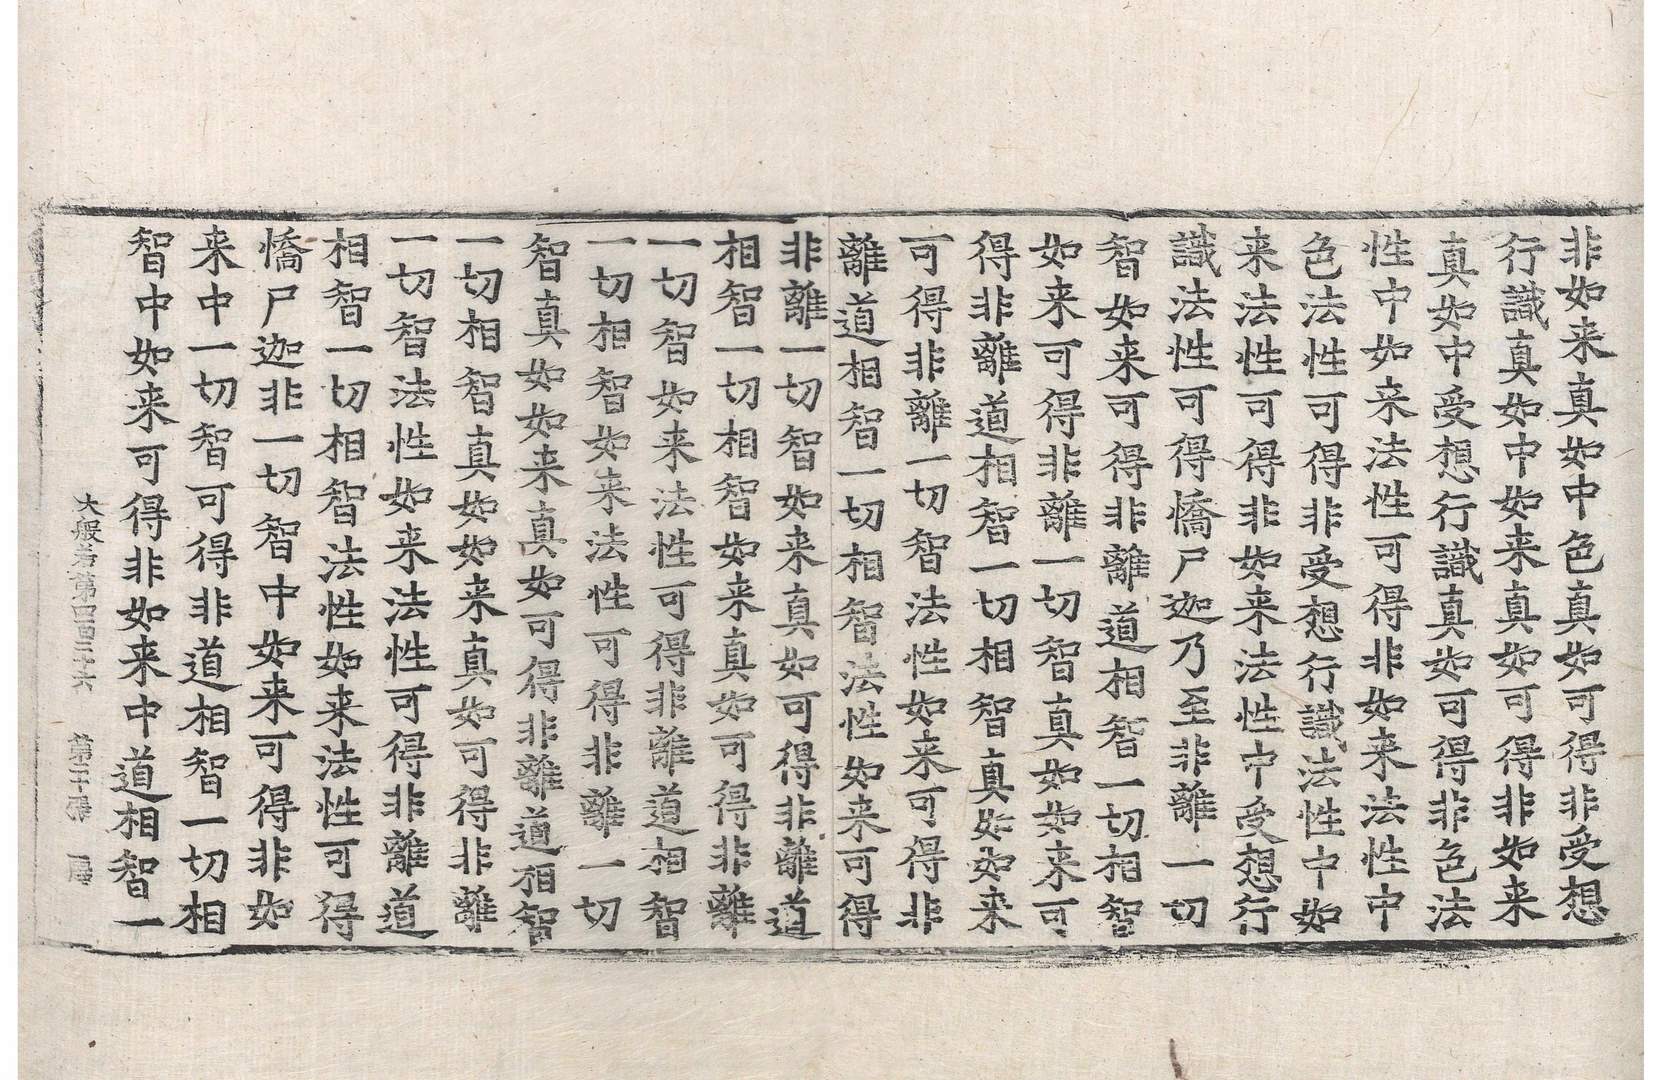 非如来真如中色真如可得非受想
行識真如中如来真如可得非如来
真如中受想行識真如可得非色法
性中如来法性可得非如来法性中
色法性可得非受想行識法性中如
来法性可得非如来法性中受想行
識法性可得憍尸迦乃至非離一切
智如来可得非離道相智一切相智
如来可得非離一切智真如如来可
得非離道相智一切相智真如如来
可得非離一切智法性如来可得非
離道相智一切相智法性如来可得
非離一切智如来真如可得非離道
相智一切相智如来真如可得非離
一切智如来法性可得非離道相智
一切相智如来法性可得非離一切
智真如如来真如可得非離道相智
一切相智真如如来真如可得非離
一切智法性如来法性可得非離道
相智一切相智法性如来法性可得
憍尸迦非一切智中如来可得非如
来中一切智可得非道相智一切相
智中如来可得非如来中道相智一
大般若第四百二十六 第 張